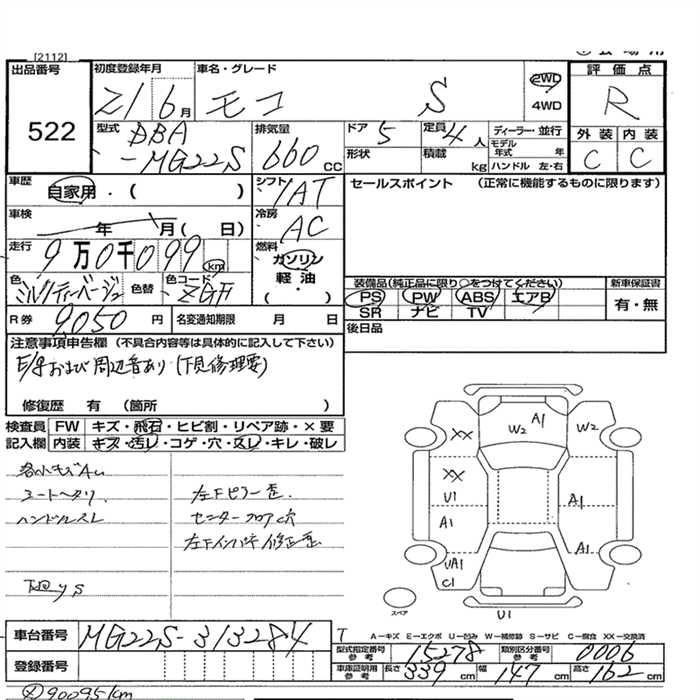 [2112]
出品番号 初度登録年月 車名・グレード 評価点
522
21 6月 モコ S 2WD 4WD R
型式 DBA-MG22S 排気量 660cc ドア 5 定員 4人 ディーラー・並行 外装 内装
形状 積載 kg モデル年式 年 ハンドル 左・右 C C
車歴 自家用・( ) シフト IAT セールスポイント (正常に機能するものに限ります)
車検 年 月( 日) 冷房 AC
走行 9万0千099 km 燃料 ガソリン 軽油 ( ・ )
色 ミルクティーベージュ 色替 色コード ZGF
装備品(純正品に限り○をつけてください) 新車保証書
PS PW ABS エアB 有・無
SR ナビ TV
R券 9,050円 名変通知期限 月 日
後日品
注意事項申告欄 (不具合内容等は具体的に記入して下さい)
E/gおよび周辺音あり(下見修理要)
修復歴 有 (箇所 )
検査員 FW キズ・飛石・ヒビ割・リペア跡・×要
記入欄 内装 キズ・汚レ・コゲ・穴・スレ・キレ・破レ
各小キズAu
シートヘタリ
ハンドルスレ
左Fピラー歪
センターフロア穴
左Fインパネ修正歪
下回ys
W2 A1 W2
XX
XX
U1
A1
A1
UA1
C1
A1
U1
スペア
車台番号 MG22S-313284
登録番号
A―キズ E―エクボ U―凹み W―補修跡 S―サビ C―腐食 XX―交換済
型式指定番号 参考 15278 類別区分番号 参考 0006
車庫証明用 参考 長さ 339cm 幅 147cm 高さ 162cm
90095km